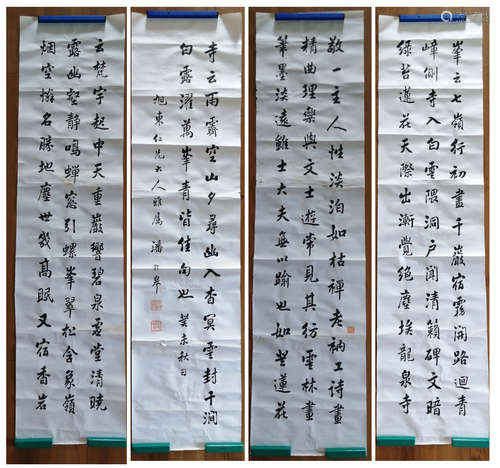 敬一主人性淡泊如枯禪老衲工詩畫
精曲理樂與文士遊常見其仿雲林畫
筆墨淡遠雖士大夫無以踰也如坐蓮花
峯云七嶺行初盡千巖宿霧開路迴青
嶂側寺入白雲隈洞戶聞清籟碑文暗
綠苔蓮花天際出漸覺絕塵埃龍泉寺
云梵宇起中天重巖響碧泉虛堂清曉
露幽壑靜鳴蟬窓引螺峯翠松含象嶺
烟空憐名勝地塵世幾高眠又宿香岩
寺云雨霽空山夕尋幽入杳冥雲封千澗
白露濯萬峯青皆佳句也 癸未秋日
旭東仁兄大人雅屬 潘齡皋